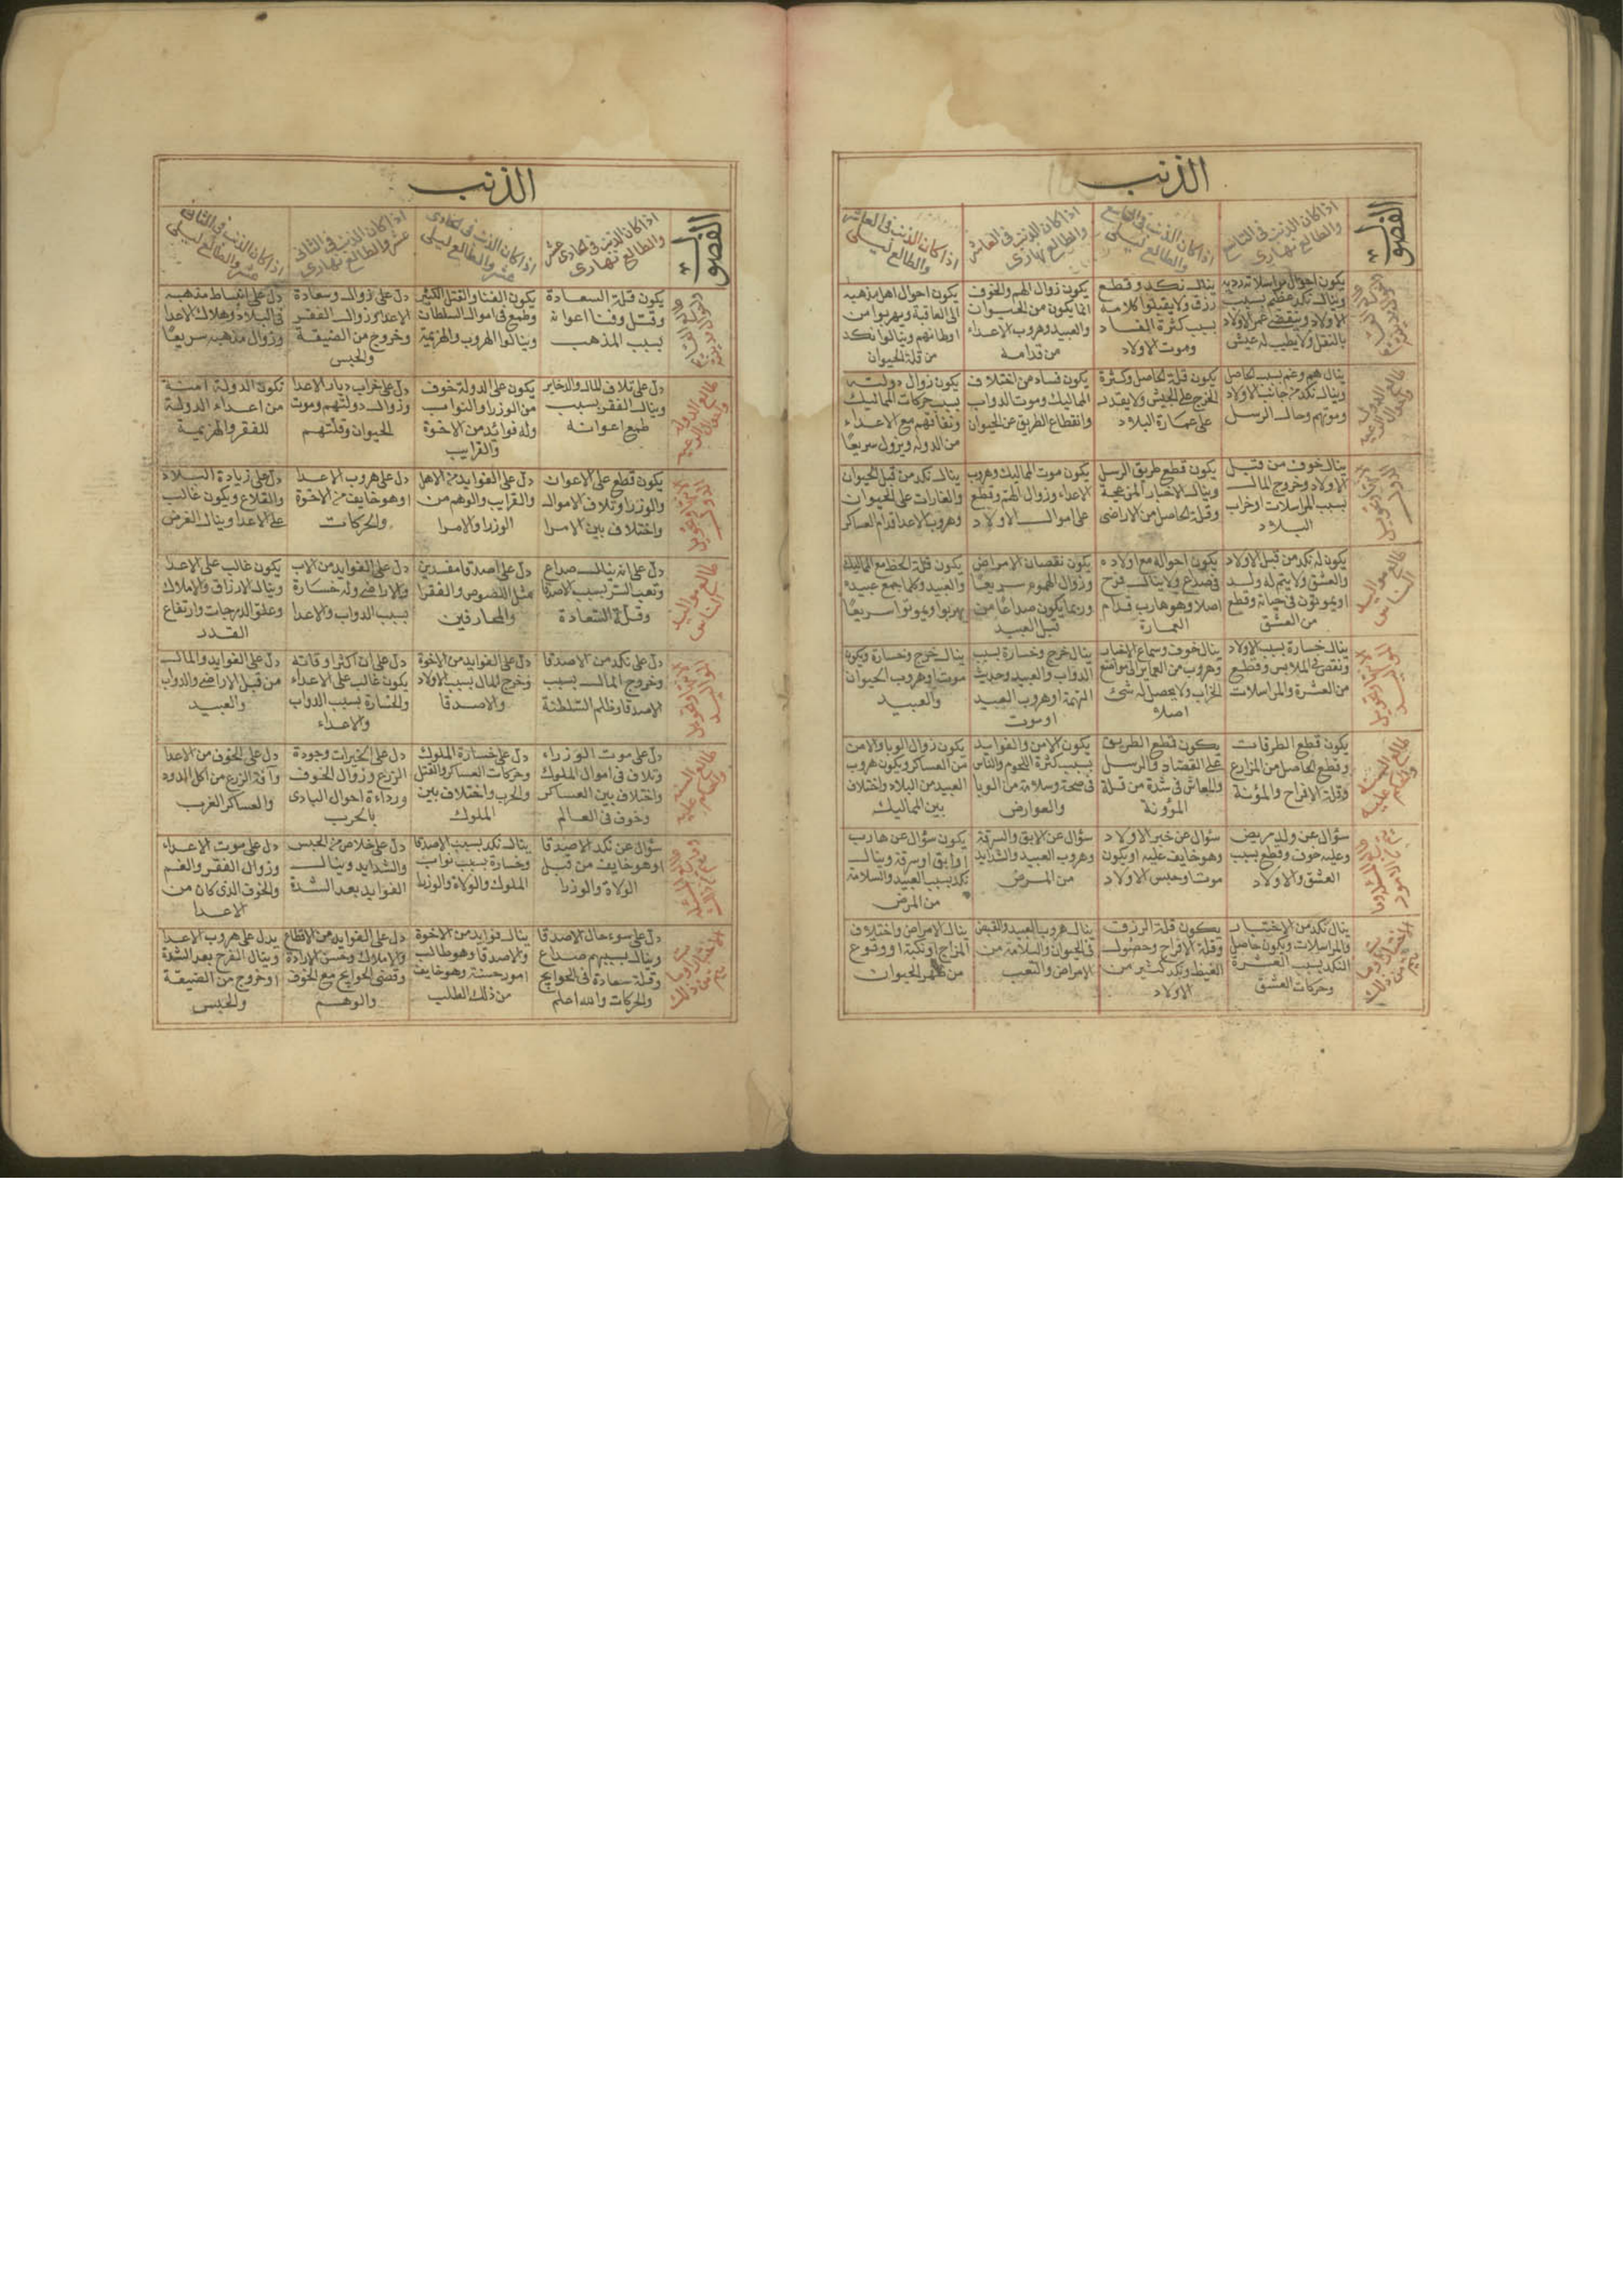 الذنب
الفصول
اذا كان الذنب فى التاسع
والطالع نهارى
اذا كان الذنب فى التاسع
والطالع ليلى
اذا كان الذنب فى العاشر
والطالع نهارى
اذا كان الذنب فى العاشر
والطالع ليلى
وينال نكد عظيم بسبب
الاولاد وينقضى عمر الاولاد
بالنقل ولا يطيب له عيش
ينال نكد وقطع
رزق ولا يقبلوا كلامه
بسبب كثرة الفساد
وموت الاولاد
يكون زوال الهم والخوف
انما يكون من الحيوان
والعبيد وهروب الاعداء
من قدامه
يكون احوال اهل مذهبه
الى العاقبة ويهربوا من
اوطانهم وينالوا نكد
من قلة الحيوان
ينال هم وغم بسبب الحاصل
وينال نكد من جانب الاولاد
وموتهم وحال الرسل
يكون قلة الحاصل وكثرة
الخرج على الجيش ولا يقدر
على عمارة البلاد
يكون فساد من اختلاف
المماليك وموت الدواب
وانقطاع الطريق عن الحيوان
يكون زوال دولته
بسبب حركات المماليك
ونفاقهم مع الاعداء
من الدوله ويزول سريعًا
ينال خوف من قبل
الاولاد وخروج المال
بسبب المراسلات او خراب
البلاد
يكون قطع طريق الرسل
وينال الاخبار المزعجة
وقلة الحاصل من الاراضى
يكون موت المماليك وهروب
الاعداء وزوال الهم وقطع
على اموال الاولاد
ينال نكد من قبل الحيوان
والغارات على الحيوان
وهروب الاعدا قدام العساكر
طالع مواليد
الناس
يكون له نكد من قبل الاولاد
والعشق ولا يتم له ولد
او يموتون فى حياته وقطع
من العشق
يكون احواله مع اولاده
فى صداع ولا ينال فرح
اصلا وهو هارب قدام
العمارة
يكون نقصان الامراض
وزوال الهموم سريعًا
وربما يكون صداعًا من
قبل العبيد
يكون قلة الحظ مع المماليك
والعبيد وكلما جمع عبيده
يهربوا ويموتوا سريعًا
ينال خسارة بسبب الاولاد
ونقص فى الملابس وقطع
من العشرة والمراسلات
ينال خوف وسماع الاخبار
وهروب من العماير الى مواضع
الخراب ولا يحصل له شئ
اصلا
ينال خرج وخسارة بسبب
الدواب والعبيد وحديث
التهمة او هروب العبيد
او موت
ينال خرج وخسارة ويكون
موت او هروب الحيوان
والعبيد
يكون قطع الطرقات
وقطع الحاصل من المزارع
وقلة الافراح والمؤنة
يكون قطع الطريق
على القصاد والرسل
والمعاش فى شدة من قلة
المؤونة
يكون الامن والفوايد
بسبب كثرة اللحوم والناس
فى صحة وسلامة من الوبا
والعوارض
يكون زوال الوبا والامن
من العساكر ويكون هروب
العبيد من البلاد واختلاف
بين المماليك
سؤال عن ولد مريض
وعليه خوف وقطع بسبب
العشق والاولاد
سؤال عن خبر الاولاد
وهو خايف عليه او يكون
موت او حبس الاولاد
سؤال عن الابق والسرقة
وهروب العبيد والشدايد
من المرض
يكون سؤال عن هارب
او ابق او سرقة وينال
نكد بسبب العبيد والسلامة
من المرض
ينال نكد من الاختيار
والمراسلات ويكون حاصل
النكد بسبب العشرة
وحركات العشق
يكون قلة الرزق
وقلة الافراح وحصول
الغيظ ونكد كثير من
الاولاد
ينال هروب العبيد والقبض
فى الحيوان والسلامة من
الامراض والتعب
ينال الامراض واختلاف
المزاج او نكبة او وقوع
من ظهر الحيوان
الذنب
الفصول
اذا كان الذنب فى الحادى عشر
والطالع نهارى
اذا كان الذنب فى الحادى
عشر والطالع ليلى
اذا كان الذنب فى الثانى
عشر والطالع نهارى
اذا كان الذنب فى الثانى
عشر والطالع ليلى
يكون قلة السعادة
وقتل وفنا اعوانه
بسبب المذهب
يكون الفنا والقتل الكثير
وطمع فى اموال السلطان
وينالوا الهروب والهزيمة
دل على زوال وسعادة
الاعدا وزوال الفقر
وخروج من الضيقة
والحبس
دل على انبساط مذهبه
فى البلاد وهلاك الاعدا
وزوال مذهبه سريعًا
دل على تلاف المال والذخاير
وينال الفقر بسبب
طمع اعوانه
يكون على الدولة خوف
من الوزرا والنواب
وله فوائد من الاخوة
والقرايب
دل على خراب ديار الاعدا
وزوال دولتهم وموت
الحيوان وقلتهم
تكون الدولة امنة
من اعداء الدولة
للفقر والهزيمة
يكون قطع على الاعوان
والوزرا وتلاف الاموال
واختلاف بين الامرا
دل على الفوايد من الاهل
والقرايب والوهم من
الوزرا والامرا
دل على هروب الاعدا
او هو خايف من الاخوة
والحركات
دل على زيادة البلاد
والقلاع ويكون غالب
على الاعدا وينال الغرض
طالع مواليد
الناس
دل على انه ينال صداع
وتعب السر بسبب الاصدقا
وقلة السعادة
دل على اصدقا مفسدين
مثل اللصوص والفقرا
والمحارفين
دل على الفوايد من الاب
والاراضى وله خسارة
بسبب الدواب والاعدا
يكون غالب على الاعدا
وينال الارزاق والاملاك
وعلو الدرجات وارتفاع
القدر
دل على نكد من الاصدقا
وخروج المال بسبب
الاصدقا وظلم السلطنة
دل على الفوايد من الاخوة
وخرج المال بسبب الاولاد
والاصدقا
دل على ان اكثر اوقاته
يكون غالب على الاعداء
والخسارة بسبب الدواب
والاعداء
دل على الفوايد والمال
من قبل الاراضى والدواب
والعبيد
دل على موت الوزراء
وتلاف فى اموال الملوك
واختلاف بين العساكر
وخوف فى العالم
دل على خسارة الملوك
وحركات العساكر والقتل
والحرب واختلاف بين
الملوك
دل على الخيرات وجودة
الزرع وزوال الخوف
ورداءة احوال البادى
بالحرب
دل على الخوف من الاعدا
وآفة الزرع من اكل الدود
والعساكر الغرب
سؤال عن نكد الاصدقا
او هو خايف من قبل
الولاة والوزرا
ينال نكد بسبب الاصدقا
وخسارة بسبب نواب
الملوك والولاة والوزرا
دل على خلاص من الحبس
والشدايد وينال
الفوايد بعد الشدة
دل على موت الاعداء
وزوال الفقر والغم
والخوف الذى كان من
الاعدا
دل على سوء حال الاصدقا
وينال بسببهم صداع
وقلة سعادة فى الحوايج
والحركات والله اعلم
ينال فوايد من الاخوة
والاصدقا وهو طالب
امور حسنة وهو خايف
من ذلك الطلب
دل على الفوايد من الاقطاع
والاملاك وحسن الارادة
وقضى الحوايج مع الخوف
والوهم
يدل على هروب الاعدا
وينال الفرح بعد الشدة
او خروج من الضيقة
والحبس